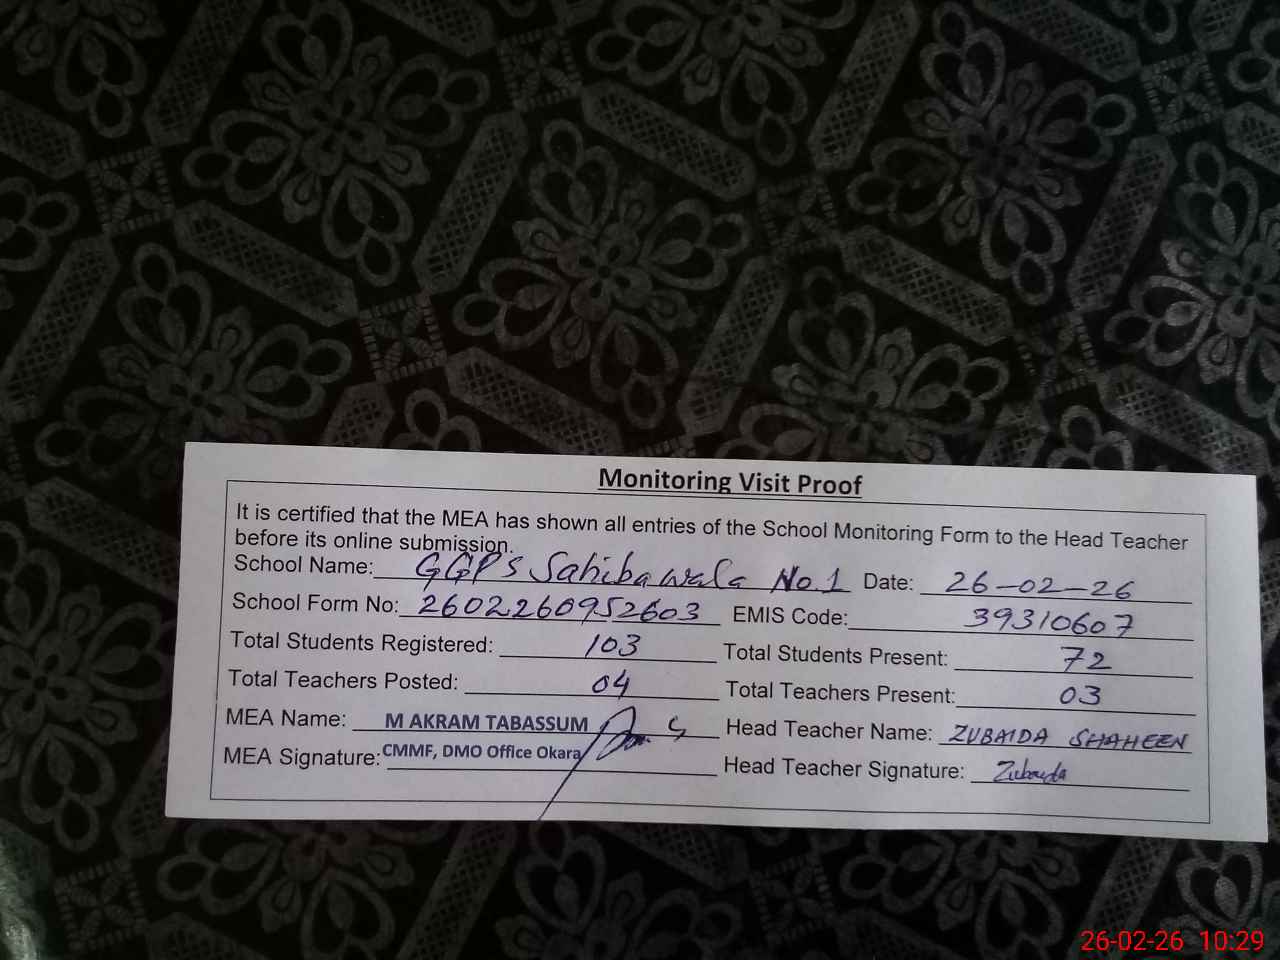 Monitoring Visit Proof
It is certified that the MEA has shown all entries of the School Monitoring Form to the Head Teacher
before its online submission.
School Name: GGPS Sahibawala No.1 Date: 26-02-26
School Form No: 2602260952603 EMIS Code: 39310607
Total Students Registered: 103 Total Students Present: 72
Total Teachers Posted: 04 Total Teachers Present: 03
MEA Name: M AKRAM TABASSUM Head Teacher Name: ZUBAIDA SHAHEEN
MEA Signature: CMMF, DMO Office Okara Head Teacher Signature: Zubayda
26-02-26 10:29